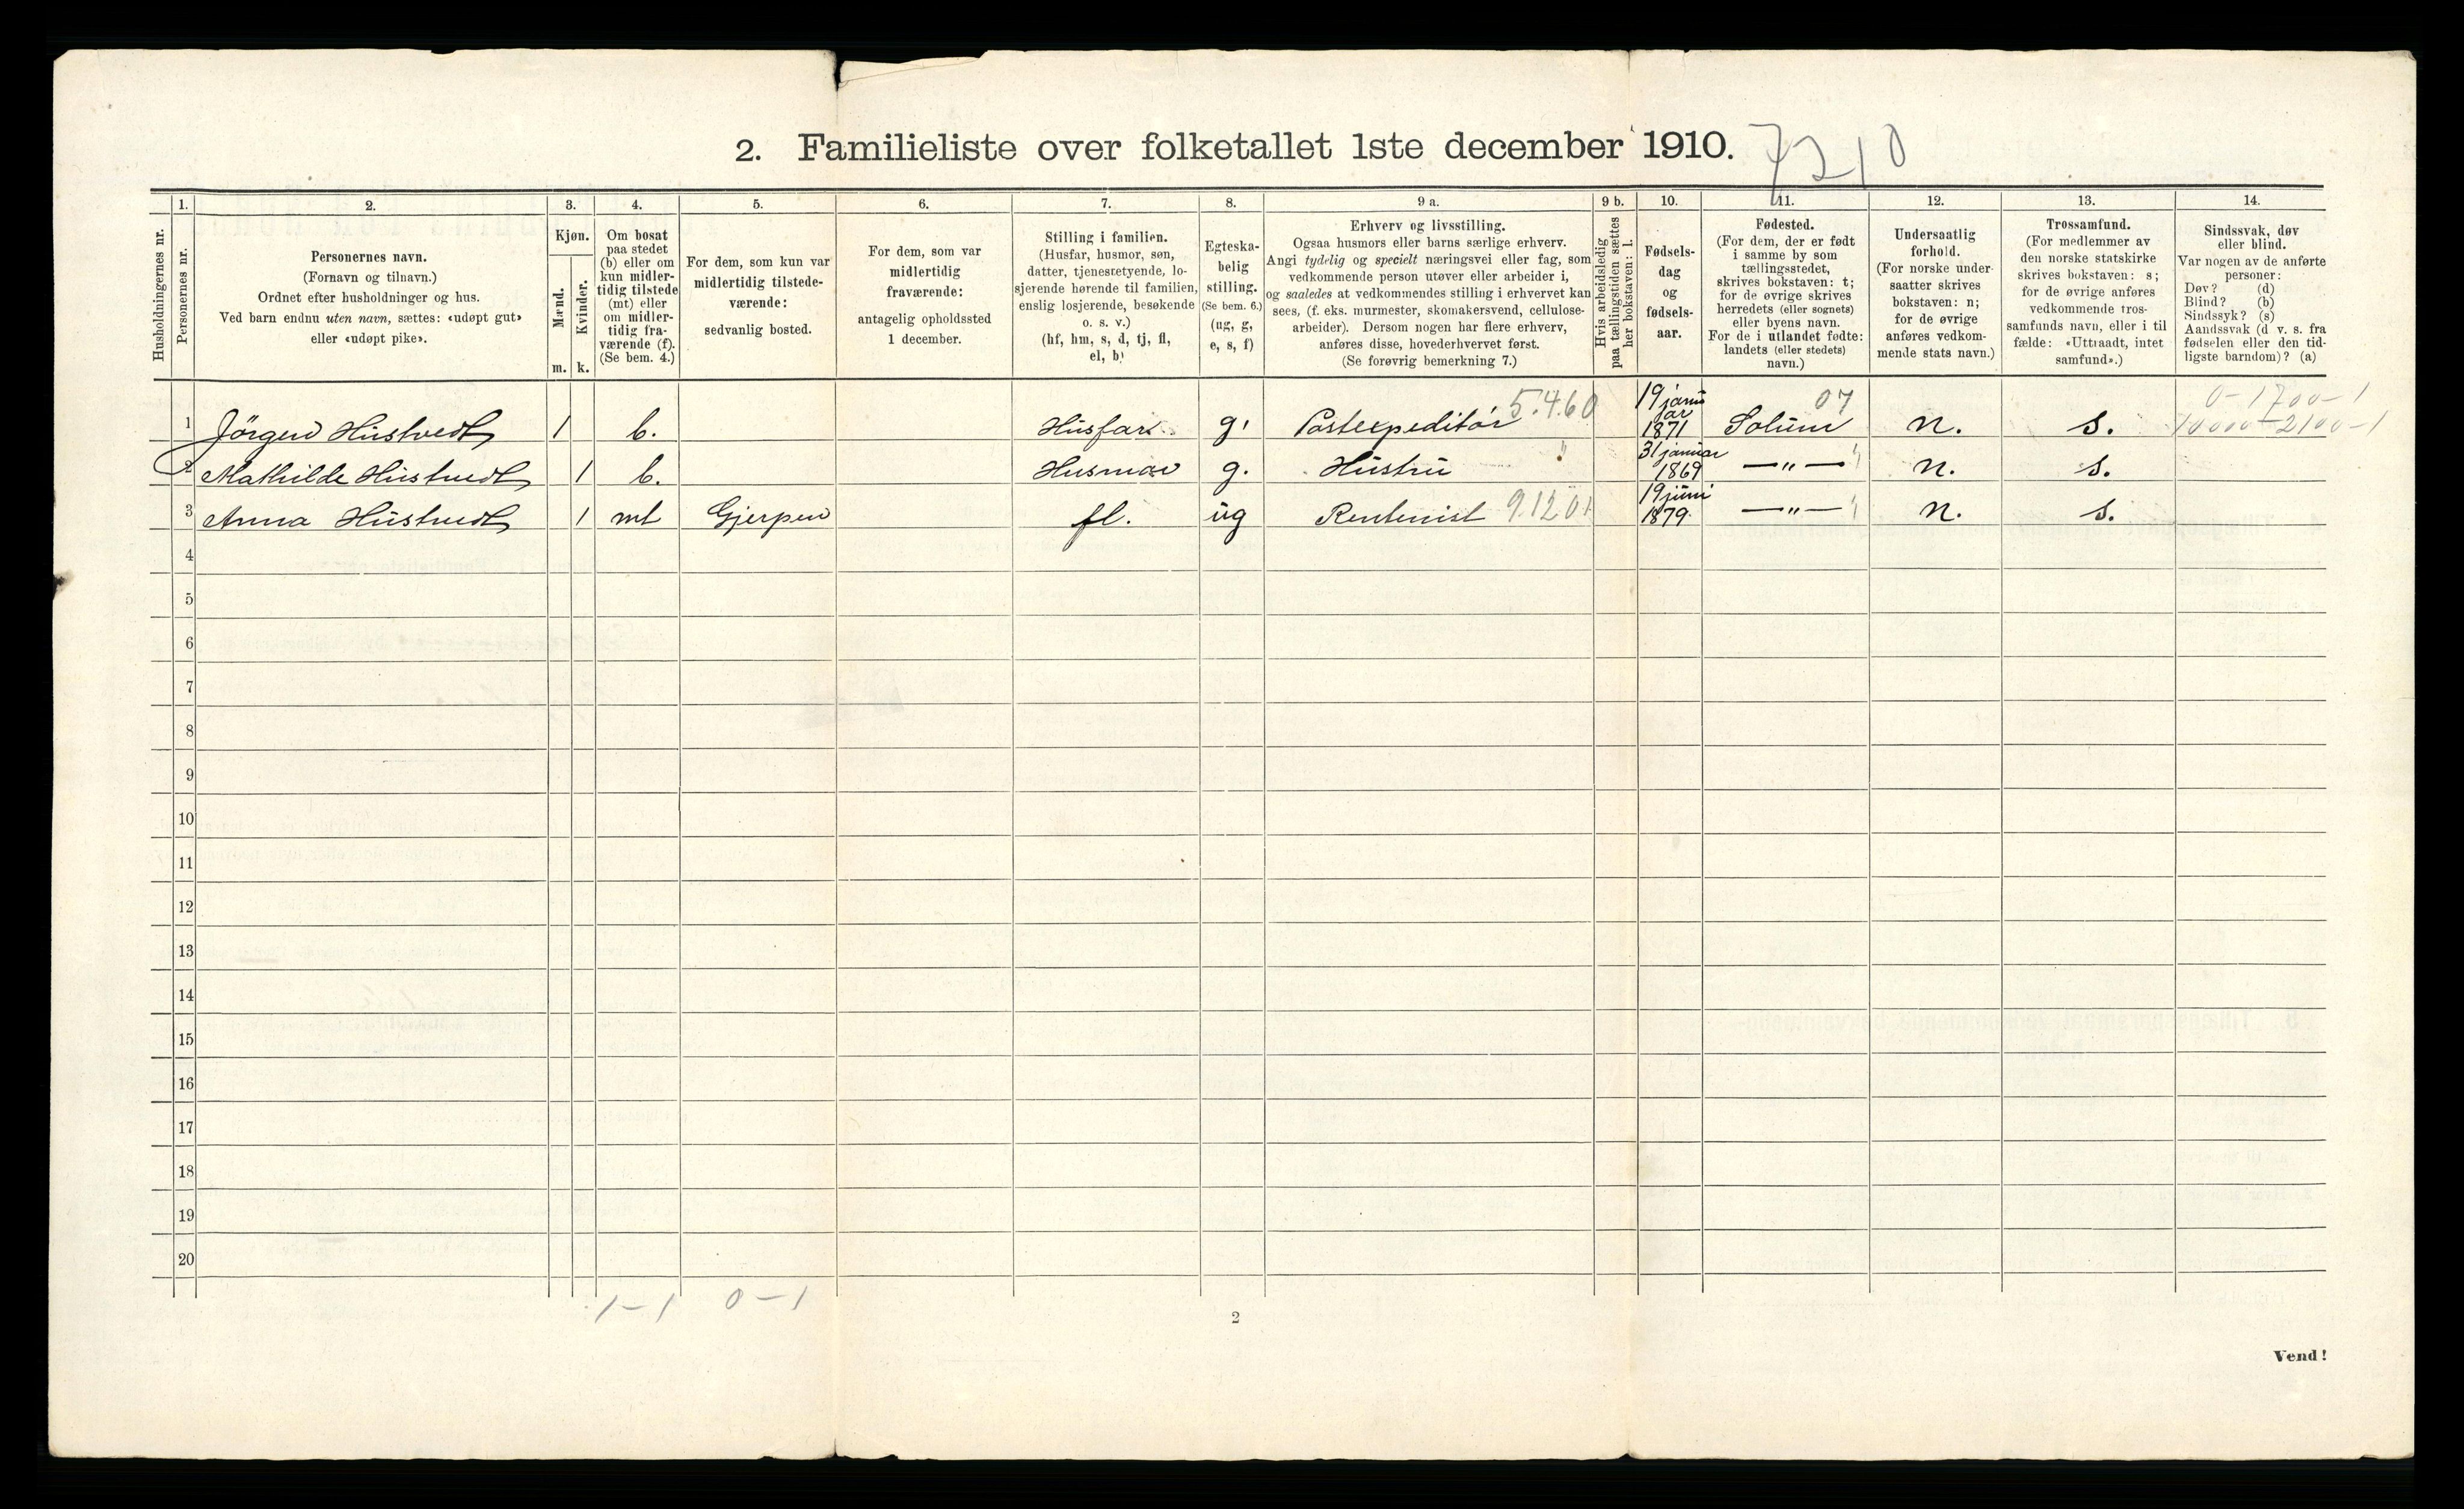 2. Familieliste over folketallet 1ste december 1910.
7210
Husholdningernes nr.
1.
Personernes nr.
2.
Personernes navn.
(Fornavn og tilnavn.)
Ordnet efter husholdninger og hus.
Ved barn endnu uten navn, sættes: «udøpt gut»
eller «udøpt pike».
3.
Kjøn.
Mænd.
Kvinder.
m. k.
4.
Om bosat
paa stedet
(b) eller om
kun midler-
tidig tilstede
(mt) eller
om midler-
tidig fra-
værende (f).
(Se bem. 4.)
5.
For dem, som kun var
midlertidig tilstede-
værende:
sedvanlig bosted.
6.
For dem, som var
midlertidig
fraværende:
antagelig opholdssted
1 december.
7.
Stilling i familien.
(Husfar, husmor, søn,
datter, tjenestetyende, lo-
sjerende hørende til familien,
enslig losjerende, besøkende
o. s. v.)
(hf, hm, s, d, tj, fl,
el, b)
8.
Egteska-
belig
stilling.
(Se bem. 6.)
(ug, g,
e, s, f)
9 a.
Erhverv og livsstilling.
Ogsaa husmors eller barns særlige erhverv.
Angi tydelig og specielt næringsvei eller fag, som
vedkommende person utøver eller arbeider i,
og saaledes at vedkommendes stilling i erhvervet kan
sees, (f. eks. murmester, skomakersvend, cellulose-
arbeider). Dersom nogen har flere erhverv,
anføres disse, hovederhvervet først.
(Se forøvrig bemerkning 7.)
9 b.
Hvis arbeidsledig
paa tællingstiden sættes
her bokstaven: l.
10.
Fødsels-
dag
og
fødsels-
aar.
11.
Fødested.
(For dem, der er født
i samme by som
tællingsstedet,
skrives bokstaven: t;
for de øvrige skrives
herredets (eller sognets)
eller byens navn.
For de i utlandet fødte:
landets (eller stedets)
navn.)
12.
Undersaatlig
forhold.
(For norske under-
saatter skrives
bokstaven: n;
for de øvrige
anføres vedkom-
mende stats navn.)
13.
Trossamfund.
(For medlemmer av
den norske statskirke
skrives bokstaven: s;
for de øvrige anføres
vedkommende tros-
samfunds navn, eller i til
fælde: «Uttraadt, intet
samfund».)
14.
Sindssvak, døv
eller blind.
Var nogen av de anførte
personer:
Døv? (d)
Blind? (b)
Sindssyk? (s)
Aandssvak (d v. s. fra
fødselen eller den tid-
ligste barndom)? (a)
1 Jörgen Hustvedt 1 b. Husfar g. Postexpeditör 5.4.60 19 januar 1871 Solum 07 n. s. 0-1700-1
10000-2100-1
2 Mathilde Hustvedt 1 b. Husmor g. Hustru " 31 januar 1869 —"— n. s.
3 Anna Hustvedt 1 mt Gjerpen fl. ug Rentenist 9.12.01 19 juni 1879. —"— n. s.
4
5
6
7
8
9
10
11
12
13
14
15
16
17
18
19
20
1-1 0-1
2
Vend!